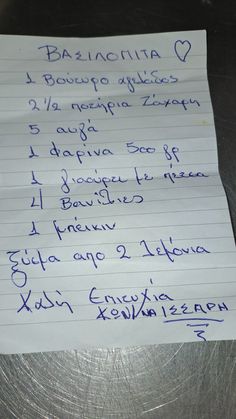 ΒΑΣΙΛΟΠΙΤΑ
1 Βούτυρο αγελάδος
2 1/2 ποτήρια Ζάχαρη
5 αυγά
1 Φαρίνα 500 γρ
1 γιαούρτι με πέτσα
4 Βανίλιες
1 μπέικιν
ξύσμα από 2 λεμόνια
Καλή Επιτυχία